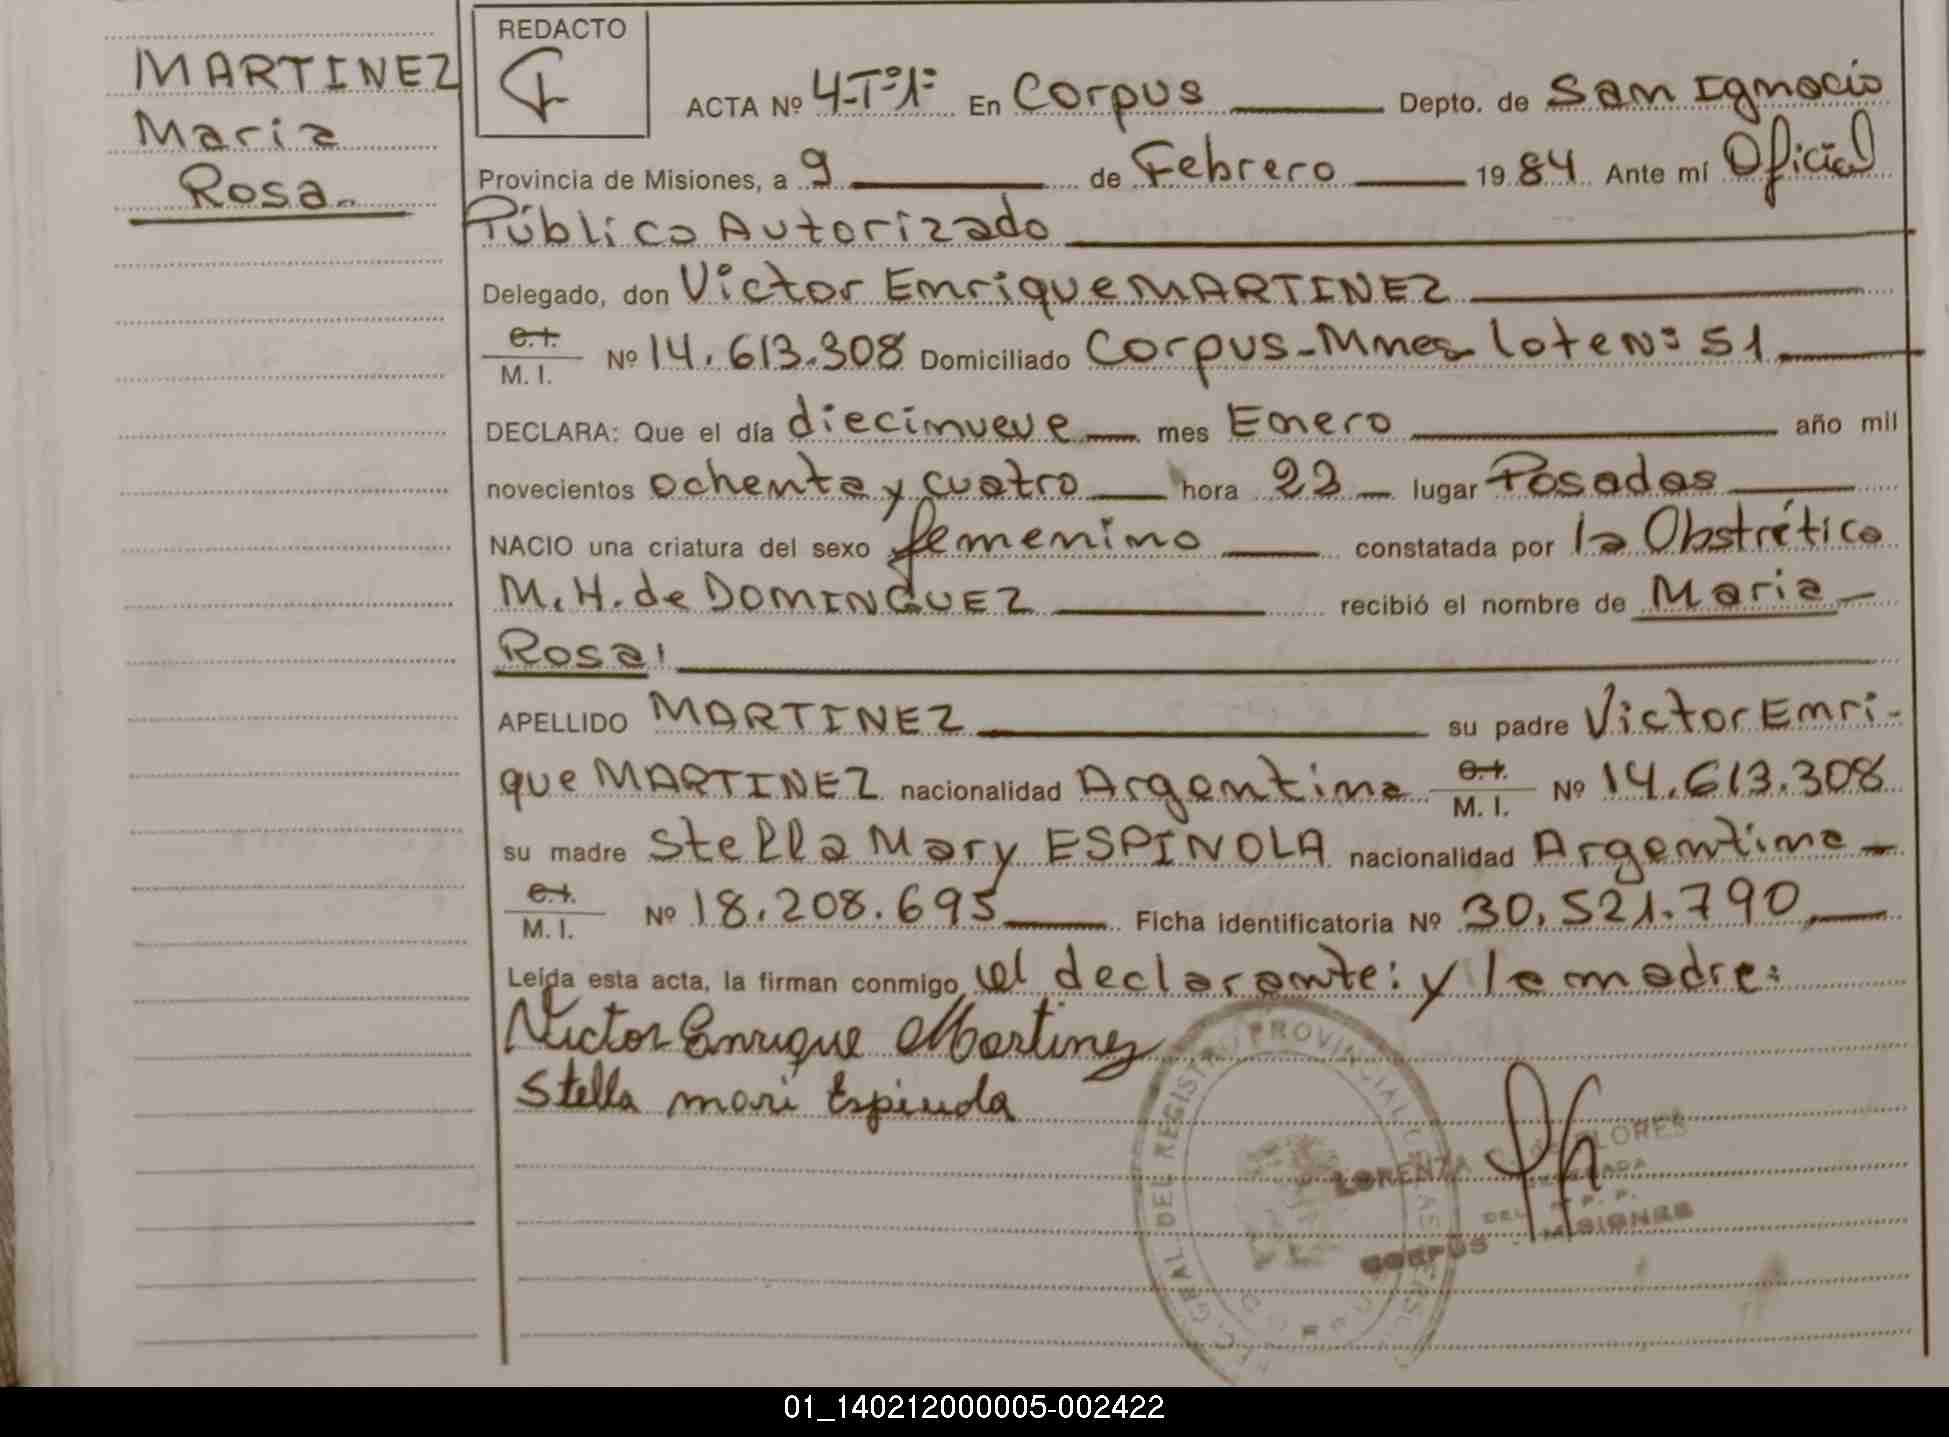 MARTINEZ
Maria
Rosa.
REDACTO
ACTA Nº 4-Tº1º En Corpus Depto. de San Ignacio
Provincia de Misiones, a 9 de Febrero 1984 Ante mí Oficial
Público Autorizado
Delegado, don Victor Enrique MARTINEZ
C.I.
M. I. Nº 14.613.308 Domiciliado Corpus-Mnes- lote Nº 51
DECLARA: Que el día diecinueve mes Enero año mil
novecientos ochenta y cuatro hora 22 lugar Posadas
NACIO una criatura del sexo femenino constatada por la Obstrética
M.H. de DOMINGUEZ recibió el nombre de Maria
Rosa
APELLIDO MARTINEZ su padre Victor Enri-
que MARTINEZ nacionalidad Argentina C.I.
M. I. Nº 14.613.308
su madre Stella Mary ESPINOLA nacionalidad Argentina
C.I.
M. I. Nº 18.208.695 Ficha identificatoria Nº 30.521.790
Leída esta acta, la firman conmigo el declarante: y la madre:
Victor Enrique Martinez
Stella mari Espinola
GRAL. DEL REGISTRO PROVINCIAL
LORENZA FLORES
DELEGADA
DEL R. P. P.
CORPUS - MISIONES
01_140212000005-002422